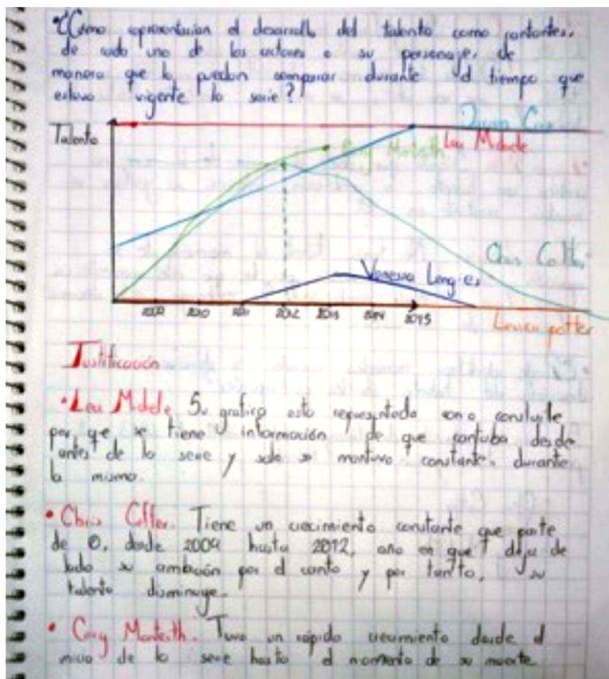 ¿Cómo representarían el desarrollo del talento como cantantes,
de cada uno de los actores o su personaje, de
manera que lo puedan comparar durante el tiempo que
estuvo vigente la serie?
Talento
Cory Monteith
Lea Michele
Chris Colfer
Vanessa Lengies
Lauren Potter
2009 2010 2011 2012 2013 2014 2015
Justificación
• Lea Michele. Su grafica esta representada como constante
por que se tiene información de que cantaba desde
antes de la serie y solo se mantuvo constante durante
la misma.
• Chris Colfer. Tiene un crecimiento constante que parte
de 0, desde 2009 hasta 2012, año en que deja de
lado su ambición por el canto y por tanto, su
talento disminuye.
• Cory Monteith. Tuvo un rápido crecimiento desde el
inicio de la serie hasta el momento de su muerte.